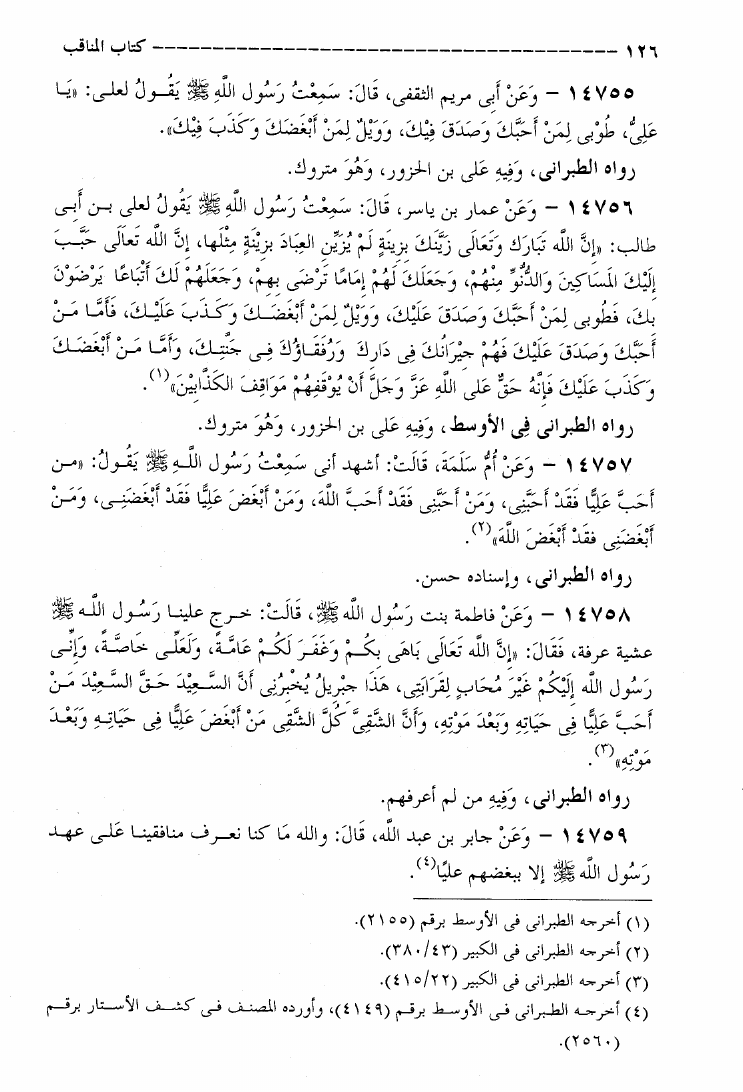 ١٢٦ ------------------------------------------------ كتاب المناقب
١٤٧٥٥ – وَعَنْ أبى مريم الثقفى، قَالَ: سَمِعْتُ رَسُول اللَّهِ ﷺ يَقُـولُ لعلـى: «يَـا
عَلِىُّ، طُوْبى لِمَنْ أَحَبَّكَ وَصَدَقَ فِيْكَ، وَوَيْلٌ لِمَنْ أَبْغَضَكَ وَكَذَبَ فِيْكَ».
رواه الطبرانى، وَفِيهِ عَلى بن الحزور، وَهُوَ متروك.
١٤٧٥٦ – وَعَنْ عمار بن ياسر، قَالَ: سَمِعْتُ رَسُول اللَّهِ ﷺ يَقُولُ لعلى بـن أبـى
طالب: «إنَّ اللَّه تَبَارَكَ وَتَعَالَى زَيَّنَكَ بزِينَةٍ لَمْ يُزَيِّنِ العِبَادَ بزِيْنَةٍ مِثْلَها، إنَّ اللَّه تَعَالَى حَبَّـبَ
إلَيْكَ المَسَاكِينَ وَالدُّنُوِّ مِنْهُمْ، وَجَعَلَكَ لَهُمْ إمَامًا تَرْضَى بِهِمْ، وَجَعَلَهُمْ لَكَ أَتْبَاعًا يَرْضَوْنَ
بكَ، فَطُوبى لِمَنْ أَحَبَّكَ وَصَدَقَ عَلَيْكَ، وَوَيْلٌ لِمَنْ أَبْغَضَـكَ وَكَـذَبَ عَلَيْـكَ، فَأَمَّـا مَـنْ
أَحَبَّكَ وَصَدَقَ عَلَيْكَ فَهُمْ جيْرَانُكَ فِى دَارِكَ وَرُفَقَـاؤُكَ فِـى جَنَّتِـكَ، وَأَمَّـا مَـنْ أَبْغَضَـكَ
وَكَذَبَ عَلَيْكَ فَإنَّهُ حَقٌّ عَلى اللَّهِ عَزَّ وَجَلَّ أَنْ يُوْقِفَهُمْ مَوَاقِفَ الكَذَّابيْنَ»(١).
رواه الطبرانى فِى الأوسط، وَفِيهِ عَلى بن الحزور، وَهُوَ متروك.
١٤٧٥٧ – وَعَنْ أُمُّ سَلَمَةَ، قَالَتْ: أشهد أنى سَمِعْتُ رَسُول اللَّـهِ ﷺ يَقُـولُ: «مـن
أَحَبَّ عَلِيًّا فَقَدْ أَحَبَّنِى، وَمَنْ أَحَبَّنِى فَقَدْ أَحَبَّ اللَّهَ، وَمَنْ أَبْغَضَ عَلِيًّا فَقَدْ أَبْغَضَنِـى، وَمَـنْ
أَبْغَضَنِى فقَدْ أَبْغَضَ اللَّهَ»(٢).
رواه الطبرانى، وإسناده حسن.
١٤٧٥٨ – وَعَنْ فاطمة بنت رَسُول اللَّه ﷺ، قَالَتْ: خـرج علينـا رَسُـول اللَّـه ﷺ
عشية عرفة، فَقَالَ: «إنَّ اللَّه تَعَالَى بَاهَى بِكُـمْ وَغَفَـرَ لَكُـمْ عَامَّـةً، وَلَعَلَّـى خَاصَّـةً، وَإنِّـى
رَسُول اللَّه إلَيْكُمْ غَيْرَ مُحَابٍ لِقَرَابَتِى، هَذَا جبْريلُ يُخْبرُنِى أَنَّ السَّـعِيْدَ حَـقَّ السَّـعِيْدَ مَـنْ
أَحَبَّ عَلِيًّا فِى حَيَاتِهِ وَبَعْدَ مَوْتِهِ، وَأَنَّ الشَّقِىَّ كُلَّ الشَّقِى مَنْ أَبْغَضَ عَلِيًّا فِى حَيَاتِـهِ وَبَعْـدَ
مَوْتِهِ»(٣).
رواه الطبرانى، وَفِيهِ من لم أعرفهم.
١٤٧٥٩ – وَعَنْ جابر بن عبد اللَّه، قَالَ: واللَّه مَا كنا نعـرف منافقينـا عَلـى عهـد
رَسُول اللَّه ﷺ إلا ببغضهم عليًا(٤).
(١) أخرجه الطبرانى فى الأوسط برقم (٢١٥٥).
(٢) أخرجه الطبرانى فى الكبير (٣٨٠/٤٣).
(٣) أخرجه الطبرانى فى الكبير (٤١٥/٢٢).
(٤) أخرجـه الطـبرانى فـى الأوسـط برقـم (٤١٤٩)، وأورده المصنف فـى كشـف الأسـتار برقـم
(٢٥٦٠).